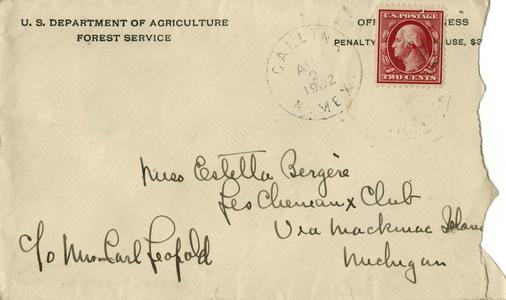 U. S. DEPARTMENT OF AGRICULTURE
FOREST SERVICE
OFF
ESS
PENALTY
USE, $3
U.S. POSTAGE
TWO CENTS
GALLIN
2
N. MEX.
Miss Estella Bergère
Les Cheneaux Club
Via Mackinac Islan
Michigan
C/o Mrs. Carl Leopold